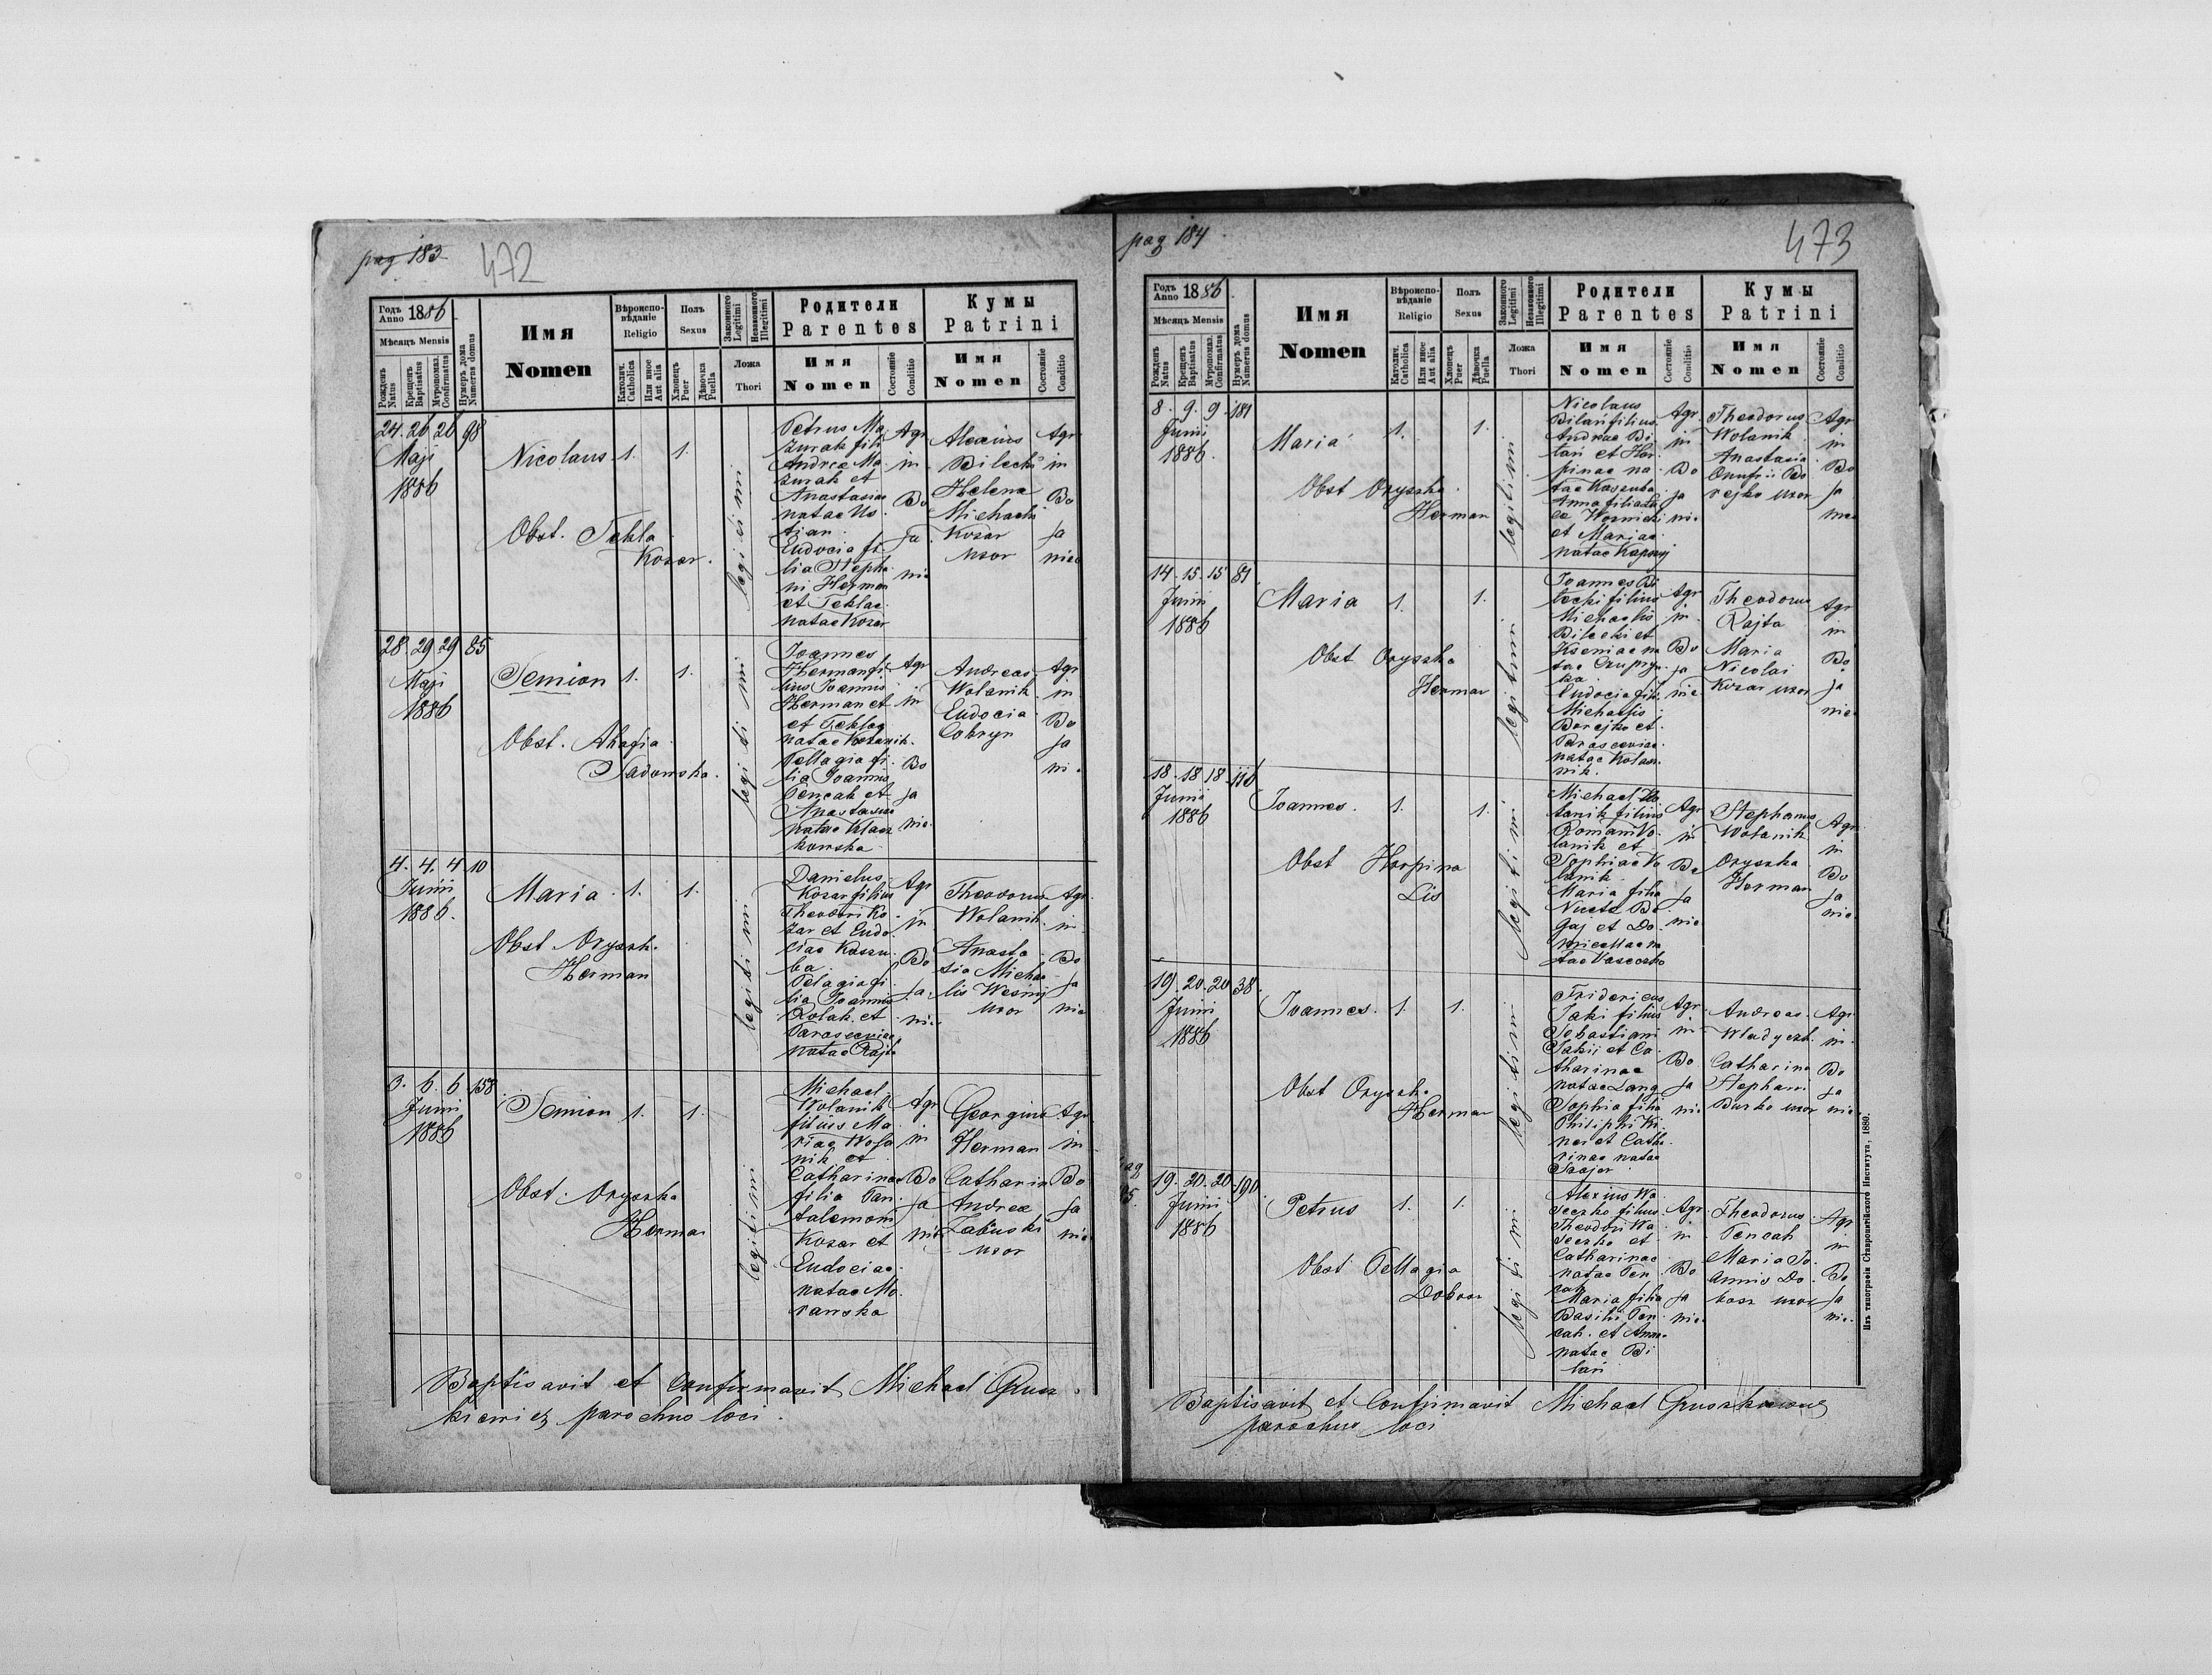 pag 183
472
Годъ Anno 1886.
Мѣсяцъ Mensis
Рожденъ Natus
Крещенъ Baptisatus
Мѵропомаз. Confirmatus
Нумеръ дома Numerus domus
Имя
Nomen
Вѣроиспо-
вѣданіе
Religio
Католич. Catholica
Или иное Aut alia
Полъ
Sexus
Хлопецъ Puer
Дѣвочка Puella
Законного Legitimi
Незаконного Illegitimi
Ложа
Thori
Родители
Parentes
Имя
Nomen
Состояніе
Conditio
Кумы
Patrini
Имя
Nomen
Состояніе
Conditio
24. 26 26 98
Maji
1886
Nicolaus 1. 1.
Obst. Tekla
Kozar.
legitimi
Petrus Ma
zurak fili
Andreae Ma
zurak et
Anastasiae
natae
Eudocia fi
lia Stepha
ni Herman
et Teklae
natae Kozar
Agr
in
Bo
ja
nie
Alexius
Bilecki
Helena
Michaeli
Kozar
uxor
Agr
in
Bo
ja
nie
28. 29 29 85
Maji
1886
Semion 1. 1.
Obst. Ahafia
Sadowska.
legitimi
Joannes
Herman fi
lius Joannis
Herman et
et Teklae
natae Wolanik.
Pellagia fi
lia Joannis
Pencak et
Anastasiae
natae
kowska
Agr
in
Bo
ja
nie
Andreas
Wolanik
Eudocia
Agr
in
Bo
ja
ni
4. 4. 4 10
Junii
1886.
Maria 1. 1.
Obst Oryszk.
Herman
legitimi
Danielus
Kozar filius
Theodori Ko
zar et Eudo
ciae Kaszu
ba
Pelagia fi
lia Joannis
et
Parasceviae
natae Rajta
Agr
in
Bo
ja
nie
Theodorus
Wolanik
Anasta
sia Michae
lis
uxor
Agr
in
Bo
ja
nie
3. 6. 6 158
Junii
1886
Semion 1. 1.
Obst. Oryszka
Herman
legitimi
Michael
Wolanik
filius Ma
riae Wola
nik et
Catharinae
filia Pan
talemoni
Kozar et
Eudociae
natae Mo
ranska
Agr
in
Bo
ja
nie
Georgius
Herman
Catharin
Andreae
uxor
Agr
in
Bo
ja
nie
Baptisavit et Confirmavit Michael Grusz
kiewicz parochus loci.
pag 184
473
Годъ Anno 1886.
Мѣсяцъ Mensis
Рожденъ Natus
Крещенъ Baptisatus
Мѵропомаз. Confirmatus
Нумеръ дома Numerus domus
Имя
Nomen
Вѣроиспо-
вѣданіе
Religio
Католич. Catholica
Или иное Aut alia
Полъ
Sexus
Хлопецъ Puer
Дѣвочка Puella
Законного Legitimi
Незаконного Illegitimi
Ложа
Thori
Родители
Parentes
Имя
Nomen
Состояніе
Conditio
Кумы
Patrini
Имя
Nomen
Состояніе
Conditio
8. 9. 9 181
Junii
1886.
Maria 1. 1.
Obst Oryszka
Herman
legitimi
Nicolaus
Bilań filius
Andreae Bi
lań et Har
pinae na
tae Kaszuba
Anna filia
Woznicki
et Mariae
natae
Agr
in
Bo
ja
nie
Theodorus
Wolanik
Anastasia
Onufrii Bo
rejko uxor
Agr
in
Bo
ja
nie
14. 15. 15 81
Junii
1886
Maria 1. 1.
Obst Oryszka
Herman
legitimi
Joannes Bi
lecki filius
Michaelis
Bilecki et
Kseniae na
tae
Eudocia fili
Michaelis
Borejko et
Parasceviae
natae Wolan
nik.
Agr
in
Bo
ja
nie
Theodorus
Rajta
Maria
Nicolai
Kozar uxor
Agr
in
Bo
ja
nie
18. 18 18 110
Junii
1886
Joannes. 1. 1.
Obst Horpina
Lis
legitimi
Michael Wo
lanik filius
Romani Wo
lanik et
Sophiae Wo
lanik
Maria filia
gaj et Do
na
tae
Agr
in
Bo
ja
nie
Stephanus
Wolanik
Oryszka
Herman
Agr
in
Bo
ja
nie
19. 20. 20 38.
Junii
1886
Joannes. 1. 1.
Obst Oryszka
Herman
legitimi
Fridericus
Jaki filius
Sebastiani
Jakii et Ca
tharinae
natae Lang
Sophia filia
Philiphi Ki
ner et Catha
rinae natae
Agr
in
Bo
ja
nie
Andreas
Catharina
Stephani
Burko uxor
Agr
in
Bo
ja
nie
19. 20. 20 190.
Junii
1886
Petrus 1. 1.
Obst Pellagia
legitimi
Alexius Wa
seczko filius
Theodori Wa
seczko et
Catharinae
natae Pen
cak
Maria filia
Basilii Pen
cak. et Annae
natae Bi
lań
Agr
in
Bo
ja
nie
Theodorus
Pencak
Maria Jo
annis Do
uxor
Agr
in
Bo
ja
nie
Baptisavit et Confirmavit Michael Gruszkiewicz
parochus loci
Изъ типографіи Ставропигійского Института, 1880.